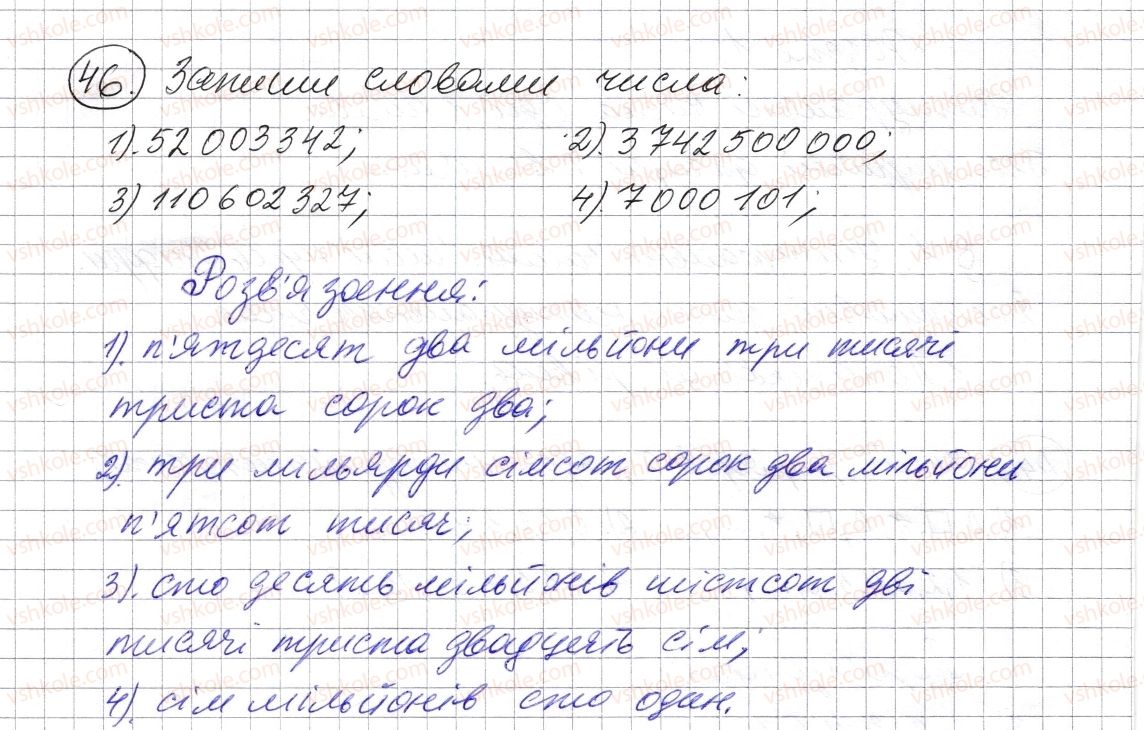 46. Запиши словами числа:
1). 52 003 342; 2). 3 742 500 000;
3) 110 602 327; 4). 7 000 101;
Розв'язання:
1). п'ятдесят два мільйони три тисячі
триста сорок два;
2). три мільярди сімсот сорок два мільйони
п'ятсот тисяч;
3). сто десять мільйонів шістсот дві
тисячі триста двадцять сім;
4). сім мільйонів сто один.
vshkole.com